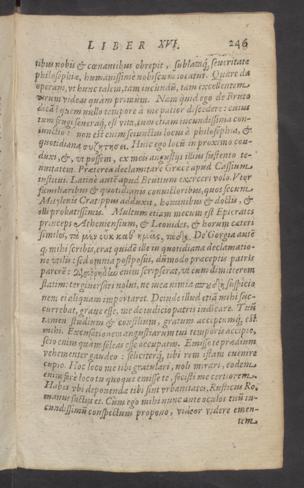 LIBER XVI. 246
tibus nobis & cœnantibus obrepit, sublatáq; seueritate
philosophiæ, humanissimè nobiscum iocatur. Quare da
operam, vt hunc talem, tam iucundũ, tam excellentem
virum videas quàm primùm. Nam quid ego de Brutio
dicã? quem nullo tempore à me patior discedere: cuius
tum frugi seueráq; est vita, tum etiam iucundissima con-
uictio: non est enim seiunctus iocus à philosophia, &
quotidiana συζητήσει. Huic ego locũ in proximo con-
duxi, &, vt possum, ex meis angustijs illius sustento te-
nuitatem. Præterea declamitare Græcè apud Cassium
institui: Latinè autẽ apud Brutium exerceri volo. Vtor
familiaribus & quotidianis conuictoribus, quos secum
Mitylenis Cratippus adduxit, hominibus & doctis, &
illi probatissimis. Multum etiam mecum est Epicrates
princeps Atheniensium, & Leonides, & horum ceteri
similes, τὰ μὲν οὖν καθ᾽ ἡμᾶς, τάδε. De Gorgia autẽ
q̃ mihi scribis, erat quidẽ ille in quotidiana declamatio-
ne vtilis: sed omnia postposui, dũmodo præceptis patris
parerẽ: διαῤῥήδην enim scripserat, vt eum dimitterem
statim: tergiuersari nolui, ne mea nimia σπουδὴ suspicio
nem ei aliquam importaret. Deinde illud etiã mihi suc-
currebat, graue esse, me de iudicio patris iudicare. Tuũ
tamen studium & consilium, gratum acceptumq́; est
mihi. Excusationem angustiarum tui temporis accipio,
scio enim quàm soleas esse occupatus. Emisse te prædium
vehementer gaudeo: feliciterq́; tibi rem istam euenire
cupio. Hoc loco me tibi gratulari, noli mirari, eodem
enim ferè loco tu quoque emisse te, fecisti me certiorem.
Habes: vbi deponendæ tibi sunt vrbanitates, Rusticus Ro
manus factus es. Cùm ego mihi nunc ante oculos tuũ iu-
cundissimũ conspectum propono, videor videre emen-
tem